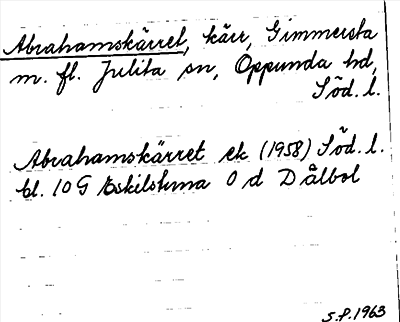 Abrahamskärret, kärr, Gimmersta
m. fl. Julita sn, Oppunda hd,
Söd. l.
Abrahamskärret ek (1958) Söd. l.
bl. 10 G Eskilstuna 0 d Dålbol
S.P. 1963